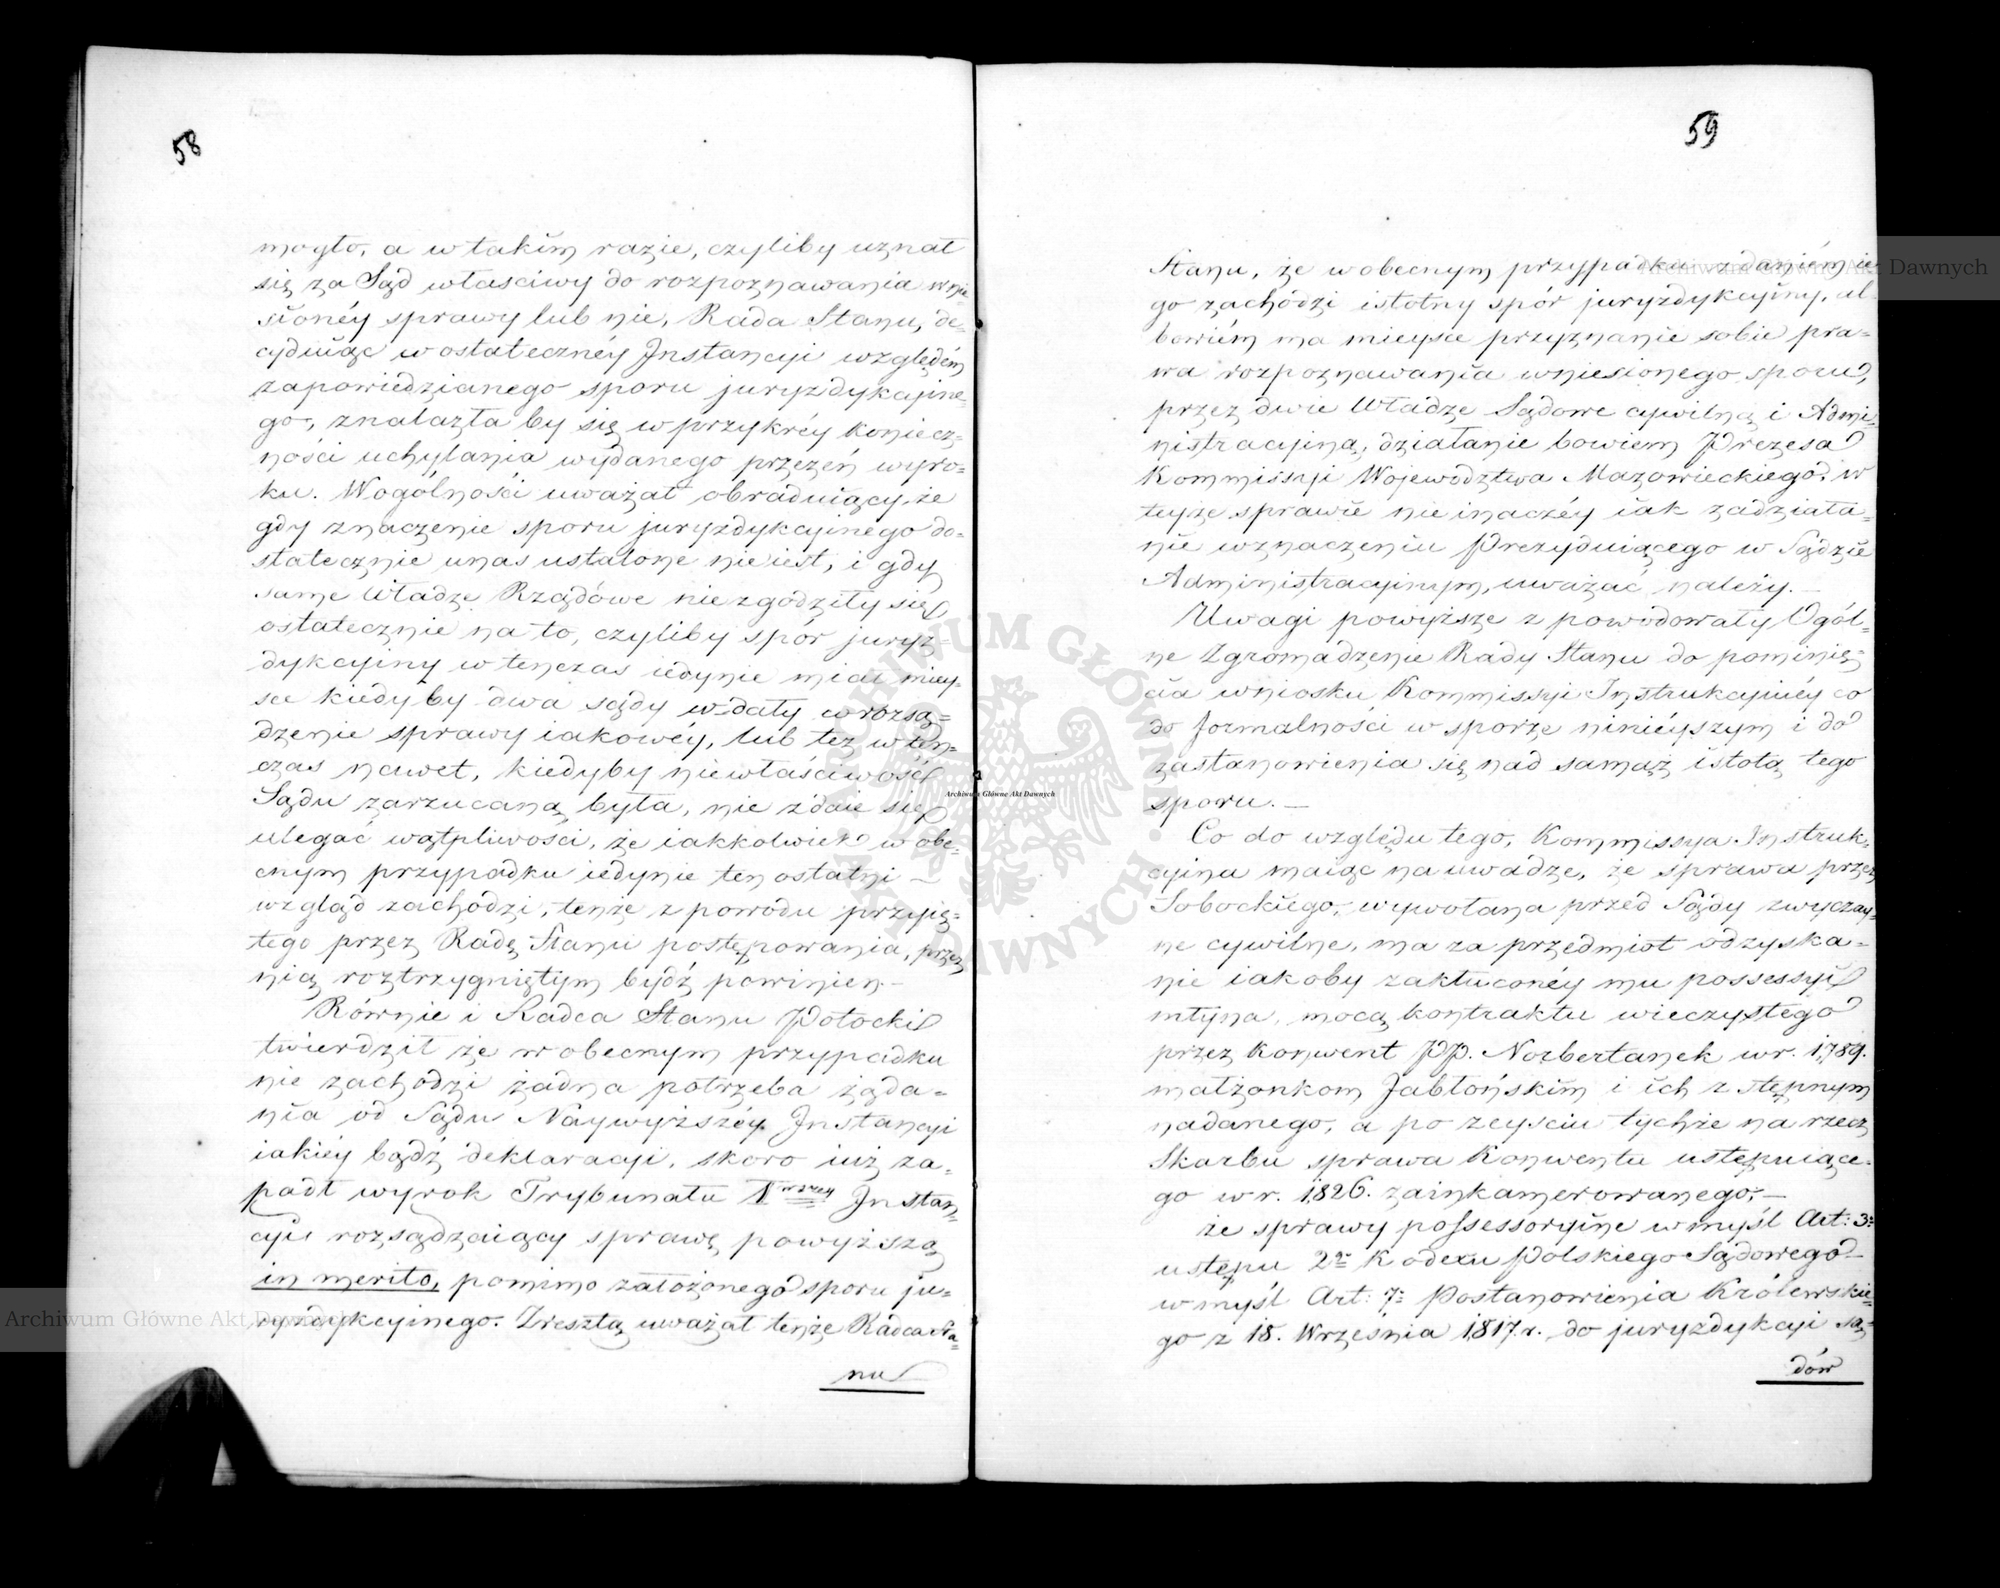 58
mogło, a w takim razie, czyliby uznał
się za Sąd właściwy do rozpoznawania wnie-
sionéy sprawy lub nie, Rada Stanu, de-
cyduiąc w ostatecznéy Instancyi względém
zapowiedzianego sporu juryzdykcyine-
go, znalazła by się w przykréy koniecz-
ności uchylania wydanego przezeń wyro-
ku. W ogólności uważał obraduiący, że
gdy znaczenie sporu juryzdykcyinego do-
statecznie u nas ustalone nie iest, i gdy
same Władze Rządowe nie zgodziły się
ostatecznie na to, czyliby spór juryz-
dykcyiny w tenczas iedynie miał miey-
sce kiedy by dwa sądy wdały w rozsą-
dzenie sprawy iakowéy, lub téż w ten-
czas nawet, kiedyby niewłaściwość
Sądu zarzucaną była, nie zdaie się
ulegać wątpliwości, że iakkolwiek w obe-
cnym przypadku iedynie ten ostatni —
wzgląd zachodzi, tenże z powodu przyię-
tego przez Radę Stanu postępowania, przez
nią roztrzygniętym bydź powinien.—
Równie i Radca Stanu Potocki
twierdził że w obecnym przypadku
nie zachodzi żadna potrzeba żąda-
nia od Sądu Naywyższéy Instancyi
iakiéy bądź deklaracyi, skoro iuż za-
padł wyrok Trybunału 1wszey Instan-
cyi rozsądzaiący sprawę powyższą
in merito, pomimo założonego sporu ju-
ryzdykcyinego. Zresztą uważał tenże Radca Sta-
nu
59
Stanu, że w obecnym przypadku zdaniém ie-
go zachodzi istotny spór juryzdykcyiny, al-
bowiém ma mieysce przyznanie sobie pra-
wa rozpoznawania wniesionego sporu,
przez dwie Władze Sądowe cywilną i Admi-
nistracyiną, działanie bowiem Prezesa
Kommissyi Województwa Mazowieckiego w
teyże sprawie nie inaczéy iak za działa-
nie w znaczeniu Prezyduiącego w Sądzie
Administracyinym, uważać należy.—
Uwagi powyższe z powodowały Ogól-
ne Zgromadzenie Rady Stanu do pominię-
cia wniosku Kommissyi Instrukcyinéy co
do formalności w sporze ninieyszym i do
zastanowienia się nad samąż istotą tego
sporu.—
Co do względu tego, Kommissya Instruk-
cyina maiąc na uwadze, że sprawa przez
Sobockiego, wywołana przed Sądy zwyczay-
ne cywilne, ma za przedmiot odzyska-
nie iakoby zakłuconéy mu possessyi
młyna, mocą kontraktu wieczystego
przez Konwent PP. Norbertanek w r. 1789.
małżonkom Jabłońskim i ich zstępnym
nadanego, a po zeyściu tychże na rzecz
Skarbu sprawa Konwentu ustępuiące-
go w r. 1826. zainkamerowanego;—
że sprawy possessoryine w myśl Art: 3º
ustępu 2º Kodexu Polskiego Sądowego—
w myśl Art: 7º Postanowienia Królewskie-
go z 18. Września 1817. r. do juryzdykcyi są-
dów
Archiwum Główne Akt Dawnych
Archiwum Główne Akt Dawnych
Archiwum Główne Akt Dawnych